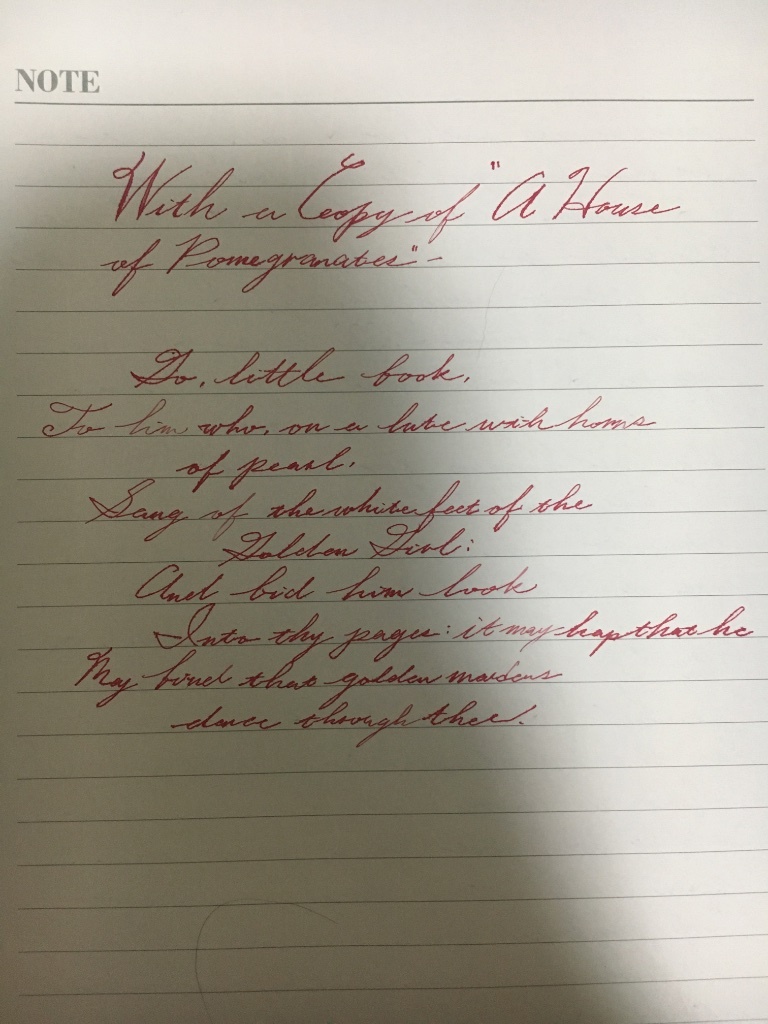 NOTE
With a Copy of "A House
of Pomegranates" -
Go, little book,
To him who, on a lute with horns
of pearl,
Sang of the white feet of the
Golden Girl:
And bid him look
Into thy pages: it may hap that he
May find that golden maidens
dance through thee.